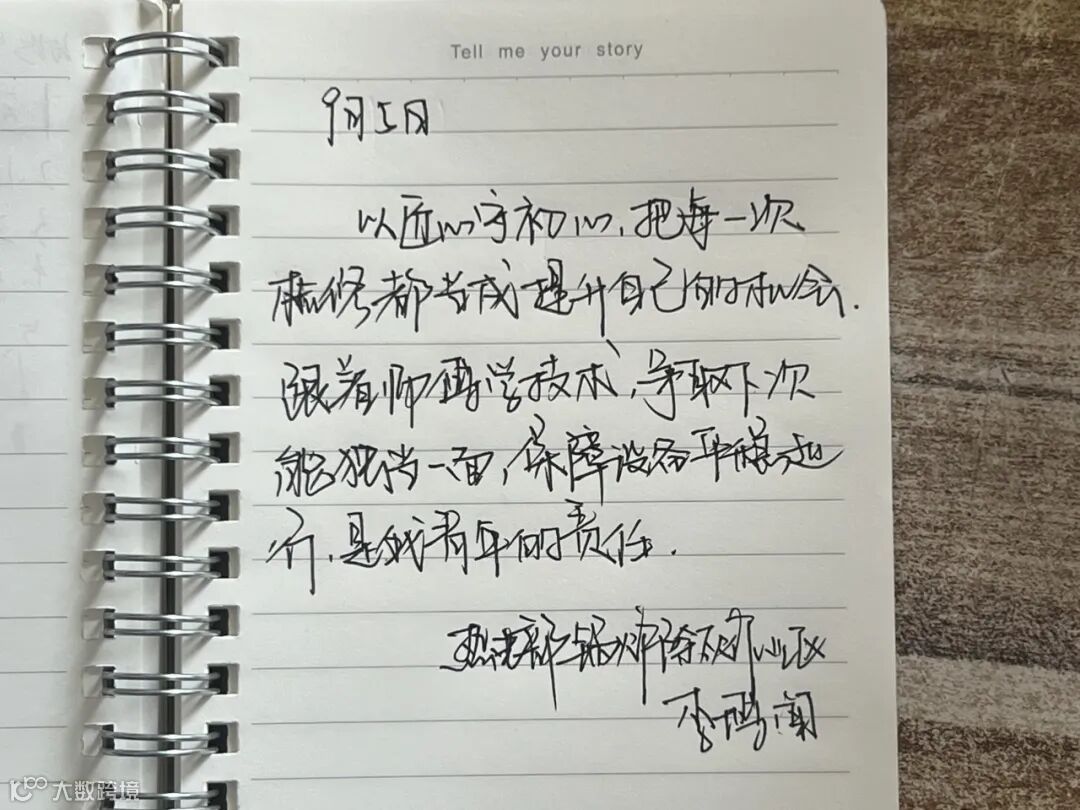 Tell me your story
9月5日
以匠心守初心,把每一次
检修都当成提升自己的机会.
跟着师傅学技术,争取下次
能独当一面,保障设备平稳运
行,是我青年的责任.
热法部锅炉除灰
李鹏
大数跨境